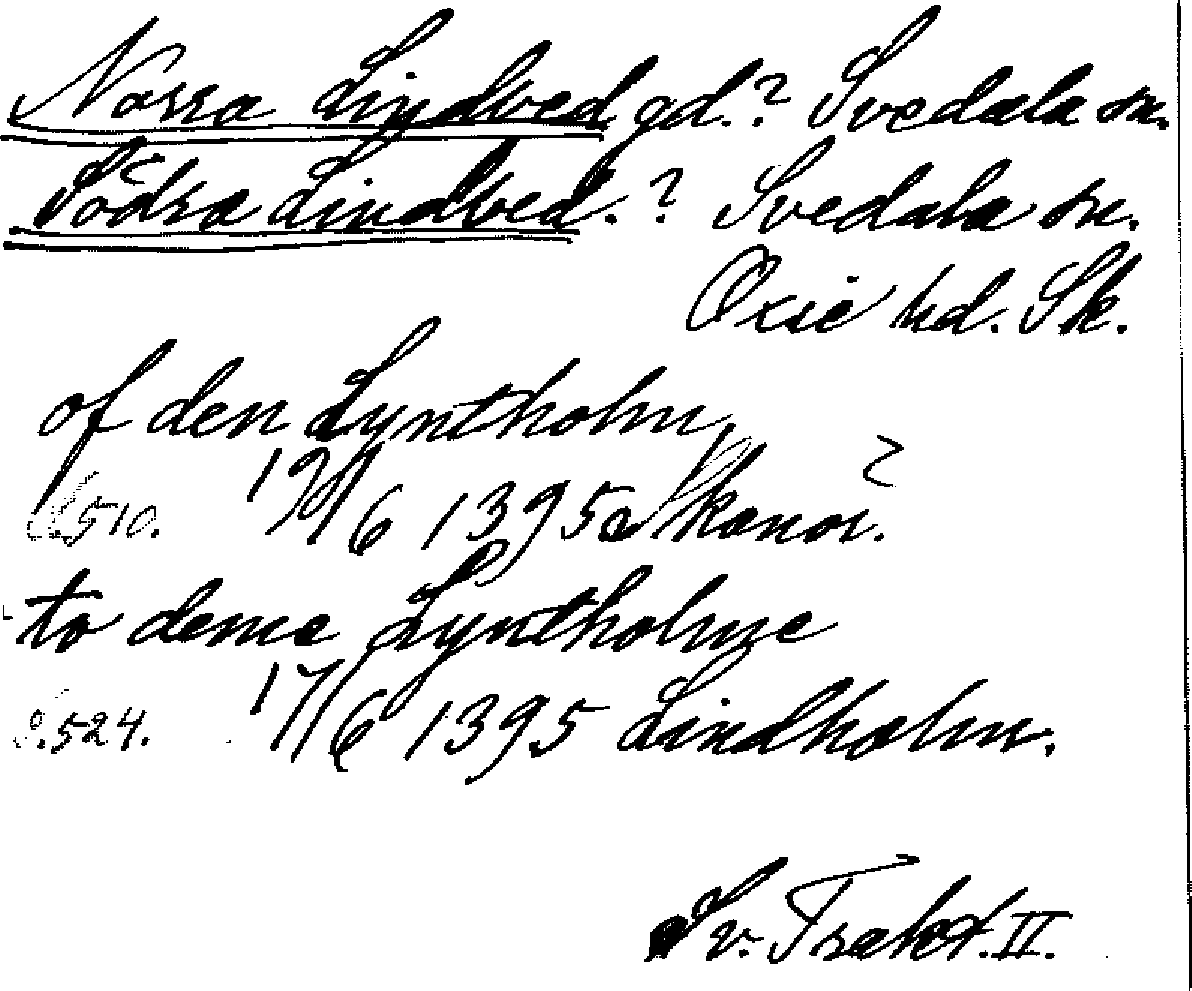 Norra Lindved gd.? Svedala sn.
Södra Lindved.? Svedala sn.
Oxie hd. Sk.
of den Lyntholm,
S.510. 19/6 1395 Skanör.?
to deme Lyntholme
S.524. 17/6 1395 Lindholm.
Sv. Trakt. II.